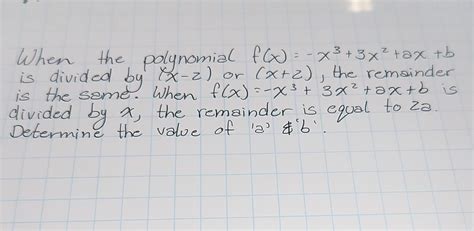 When the polynomial f(x) = -x³ + 3x² + ax + b
is divided by (x-2) or (x+2), the remainder
is the same. When f(x) = -x³ + 3x² + ax + b is
divided by x, the remainder is equal to 2a.
Determine the value of 'a' & 'b'.